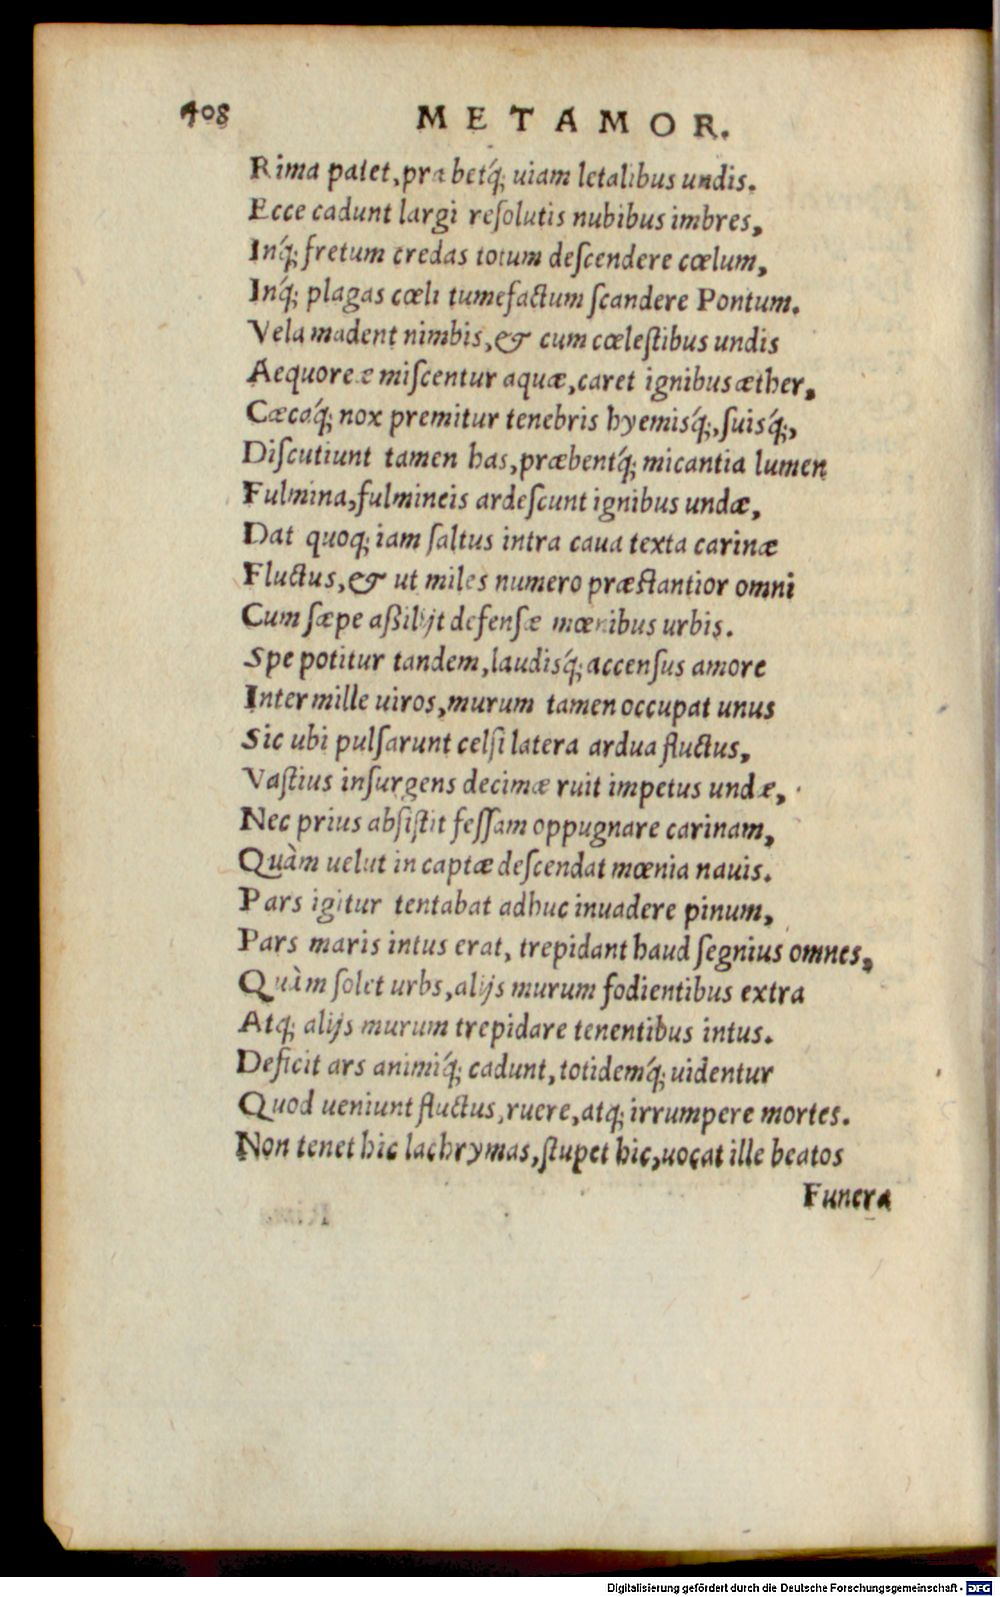 408 METAMOR.
Rima patet, præbetq́; uiam letalibus undis.
Ecce cadunt largi reſolutis nubibus imbres,
Inq́; fretum credas totum deſcendere cœlum,
Inq́; plagas cœli tumefactum ſcandere Pontum.
Vela madent nimbis, & cum cœleſtibus undis
Aequoreæ miſcentur aquæ, caret ignibus æther,
Cæcaq́; nox premitur tenebris hyemisq́;, ſuisq́;,
Diſcutiunt tamen has, præbentq́; micantia lumen
Fulmina, fulmineis ardeſcunt ignibus undæ,
Dat quoq; iam ſaltus intra caua texta carinæ
Fluctus, & ut miles numero præſtantior omni
Cum ſæpe aßilijt defenſæ mœnibus urbis.
Spe potitur tandem, laudisq́; accenſus amore
Inter mille uiros, murum tamen occupat unus
Sic ubi pulſarunt celſi latera ardua fluctus,
Vaſtius inſurgens decimæ ruit impetus undæ,
Nec prius abſiſtit feſſam oppugnare carinam,
Quàm uelut in captæ deſcendat mœnia nauis.
Pars igitur tentabat adhuc inuadere pinum,
Pars maris intus erat, trepidant haud ſegnius omnes,
Quàm ſolet urbs, alijs murum fodientibus extra
Atq; alijs murum trepidare tenentibus intus.
Deficit ars animiq́; cadunt, totidemq́; uidentur
Quod ueniunt fluctus, ruere, atq; irrumpere mortes.
Non tenet hic lachrymas, ſtupet hic, uocat ille beatos
Funera
Digitalisierung gefördert durch die Deutsche Forschungsgemeinschaft - DFG